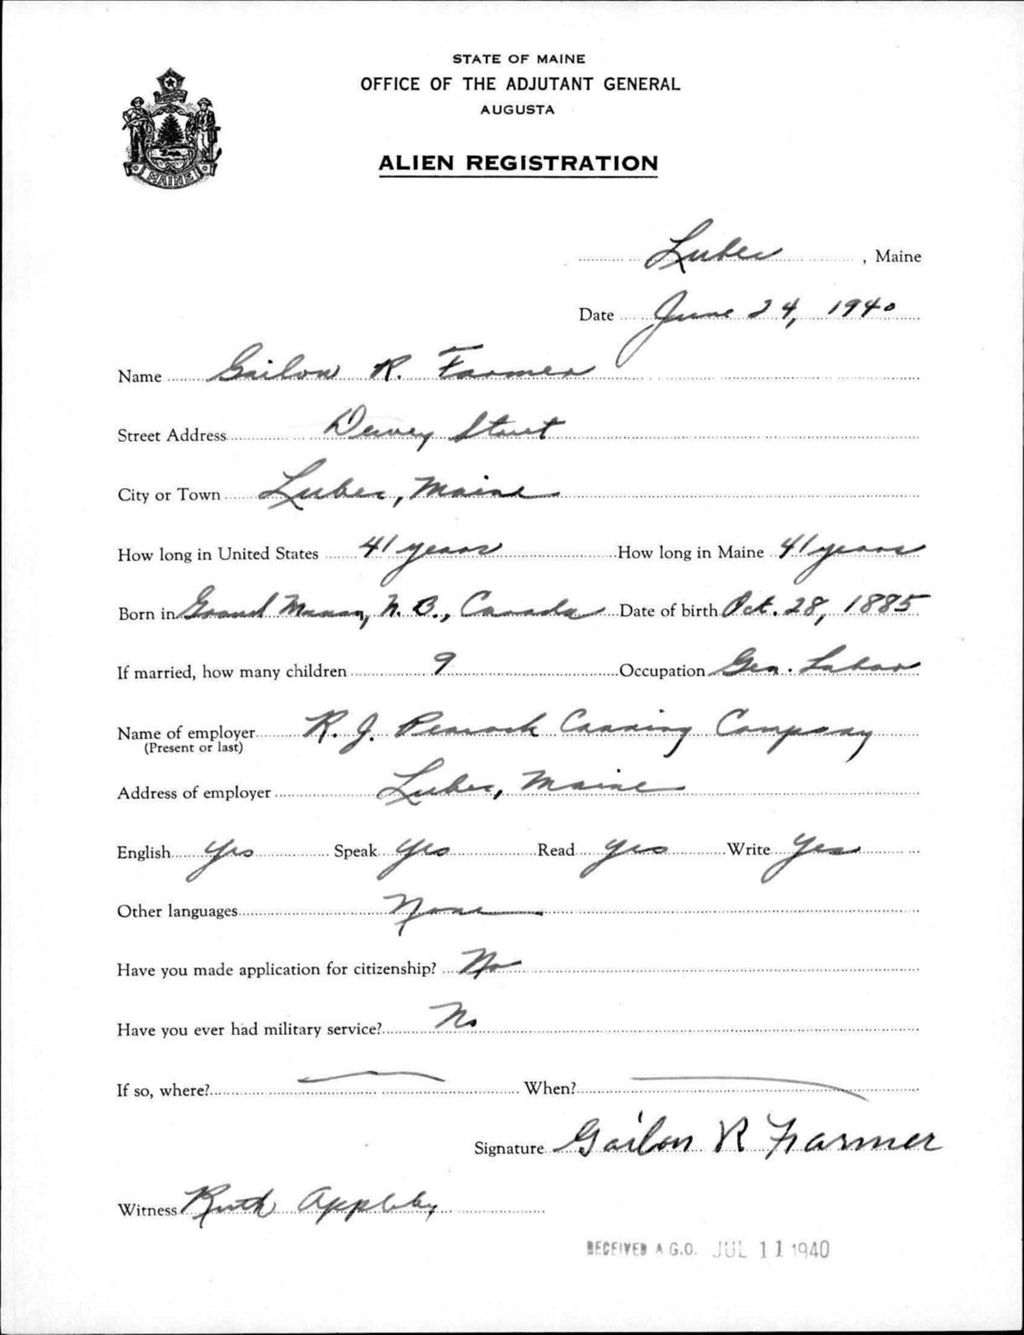 STATE OF MAINE
OFFICE OF THE ADJUTANT GENERAL
AUGUSTA
ALIEN REGISTRATION
MAINE
Lubec, Maine
Date June 24, 1940
Name Gailon R. Farmer
Street Address Dewey Street
City or Town Lubec, Maine
How long in United States 41 years How long in Maine 41 years
Born in Grand Manan, N. B., Canada Date of birth Oct. 28, 1885
If married, how many children 9 Occupation Gen. Labor
Name of employer R. J. Peacock Canning Company
(Present or last)
Address of employer Lubec, Maine
English Yes Speak Yes Read Yes Write Yes
Other languages None
Have you made application for citizenship? No
Have you ever had military service? No
If so, where? When?
Signature Gailon R Farmer
Witness Ruth Appleby
RECEIVED A.G.O. JUL 11 1940